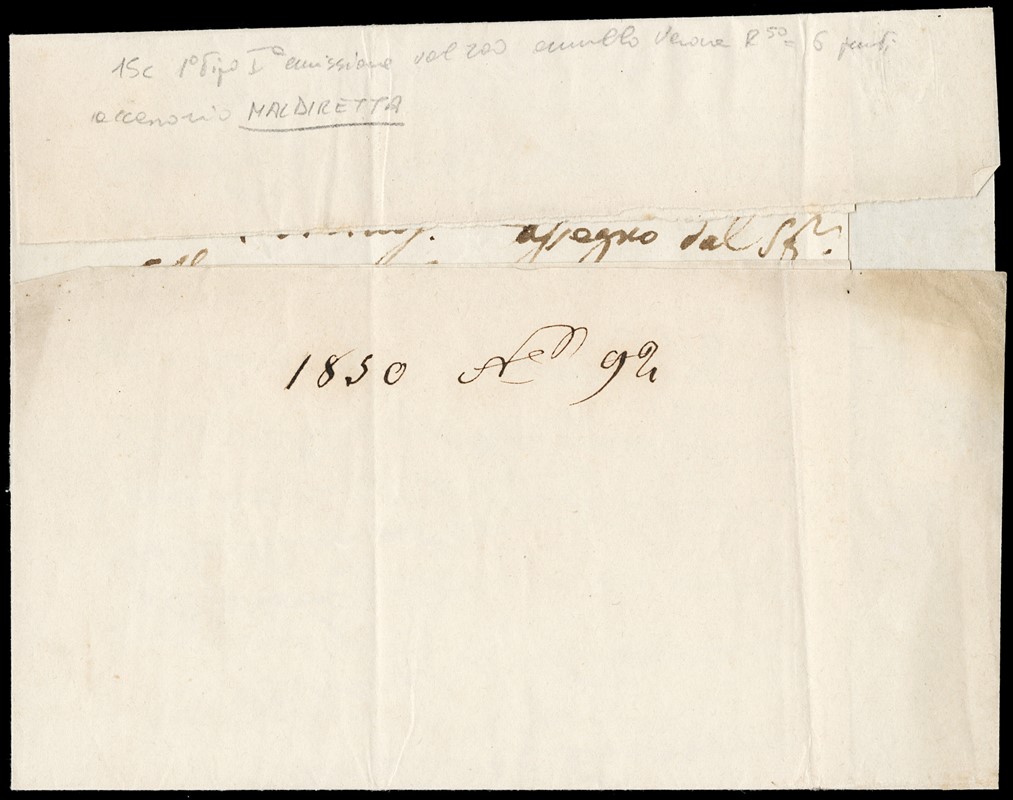 15c 1º tipo Iº emissione val 200 annullo Verona R⁵⁰ = 6 punti
accessorio MALDIRETTA
assegno dal
1850 Nº 92